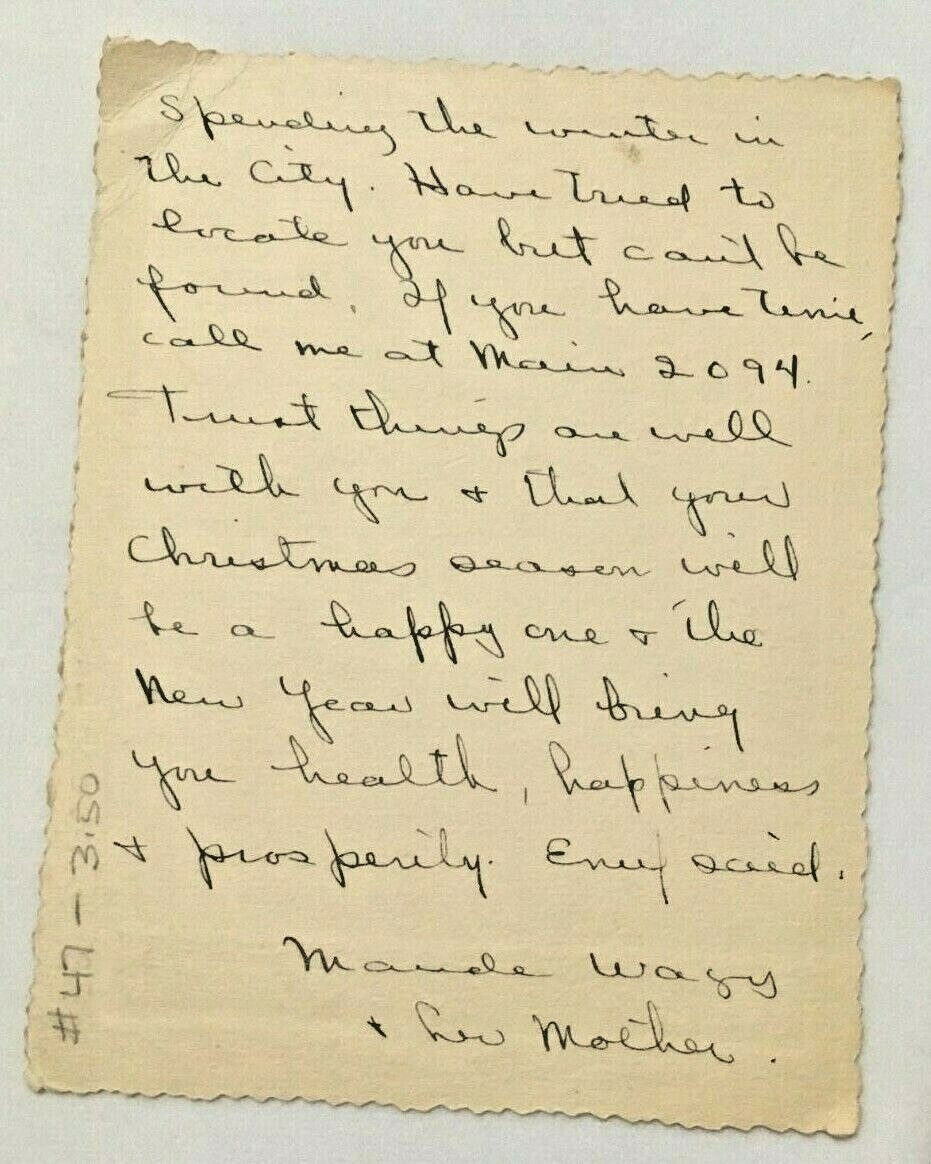 Spending the winter in
the City. Have tried to
locate you but can't be
found. If you have time,
call me at Main 2094.
Trust things are well
with you & that your
Christmas season will
be a happy one & the
New Year will bring
you health, happiness
& prosperity. Enuf said.
Maude
& her Mother.
#47 - 3.50